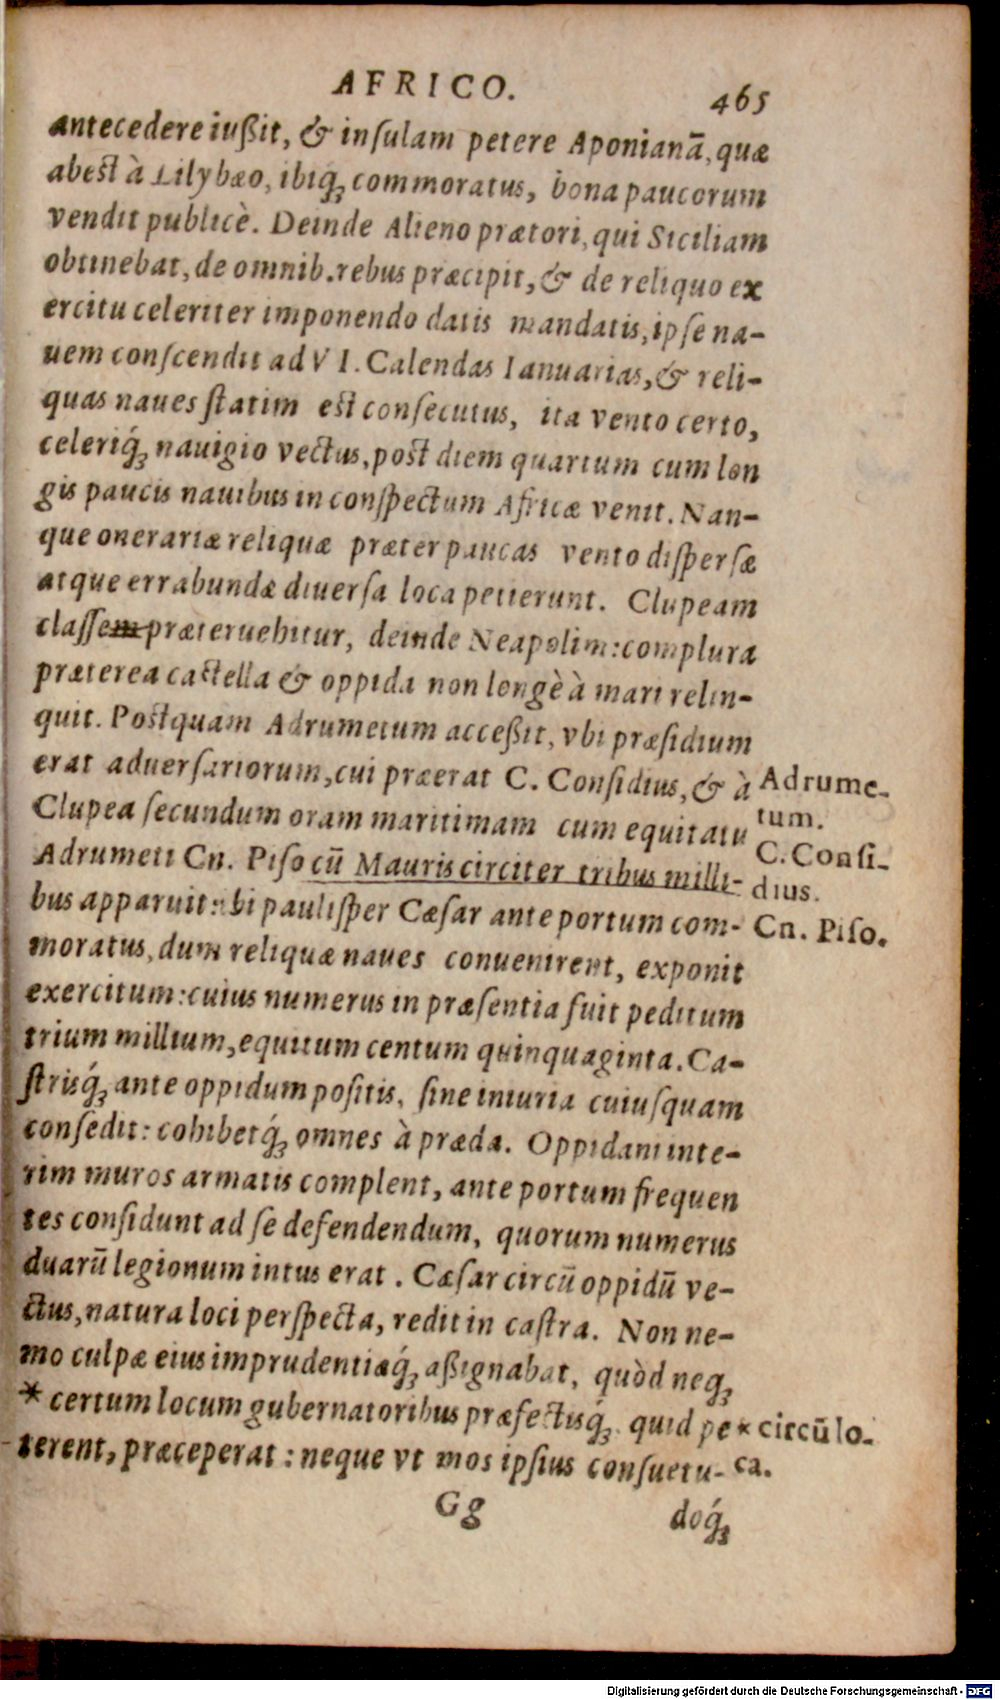 AFRICO. 465
antecedere iußit, & insulam petere Aponianā, quæ
abest à Lilybæo, ibiq́; commoratus, bona paucorum
vendit publicè. Deinde Alieno prætori, qui Siciliam
obtinebat, de omnib. rebus præcipit, & de reliquo ex
ercitu celeriter imponendo datis mandatis, ipse na-
uem conscendit ad VI. Calendas Ianuarias, & reli-
quas naues statim est consecutus, ita vento certo,
celeriq́; nauigio vectus, post diem quartum cum lon
gis paucis nauibus in conspectum Africæ venit. Nan-
que onerariæ reliquæ præter paucas vento dispersæ
atque errabundæ diuersa loca petierunt. Clupeam
classem præteruehitur, deinde Neapolim: complura
præterea castella & oppida non longè à mari relin-
quit. Postquam Adrumetum acceßit, vbi præsidium
erat aduersariorum, cui præerat C. Considius, & à
Adrume-
tum.
Clupea secundum oram maritimam cum equitatu
C. Consi-
dius.
Adrumeti Cn. Piso cū Mauris circiter tribus milli-
bus apparuit: ibi paulisper Cæsar ante portum com-
Cn. Piso.
moratus, dum reliquæ naues conuenirent, exponit
exercitum: cuius numerus in præsentia fuit peditum
trium millium, equitum centum quinquaginta. Ca-
strisq́; ante oppidum positis, sine iniuria cuiusquam
consedit: cohibetq́; omnes à præda. Oppidani inte-
rim muros armatis complent, ante portum frequen
tes considunt ad se defendendum, quorum numerus
duarū legionum intus erat. Cæsar circū oppidū ve-
ctus, natura loci perspecta, redit in castra. Non ne-
mo culpæ eius imprudentiæq́; aßignabat, quòd neq;
* certum locum gubernatoribus præfectisq́; quid pe
* circū lo-
ca.
terent, præceperat: neque vt mos ipsius consuetu-
Gg doq́;
Digitalisierung gefördert durch die Deutsche Forschungsgemeinschaft - DFG